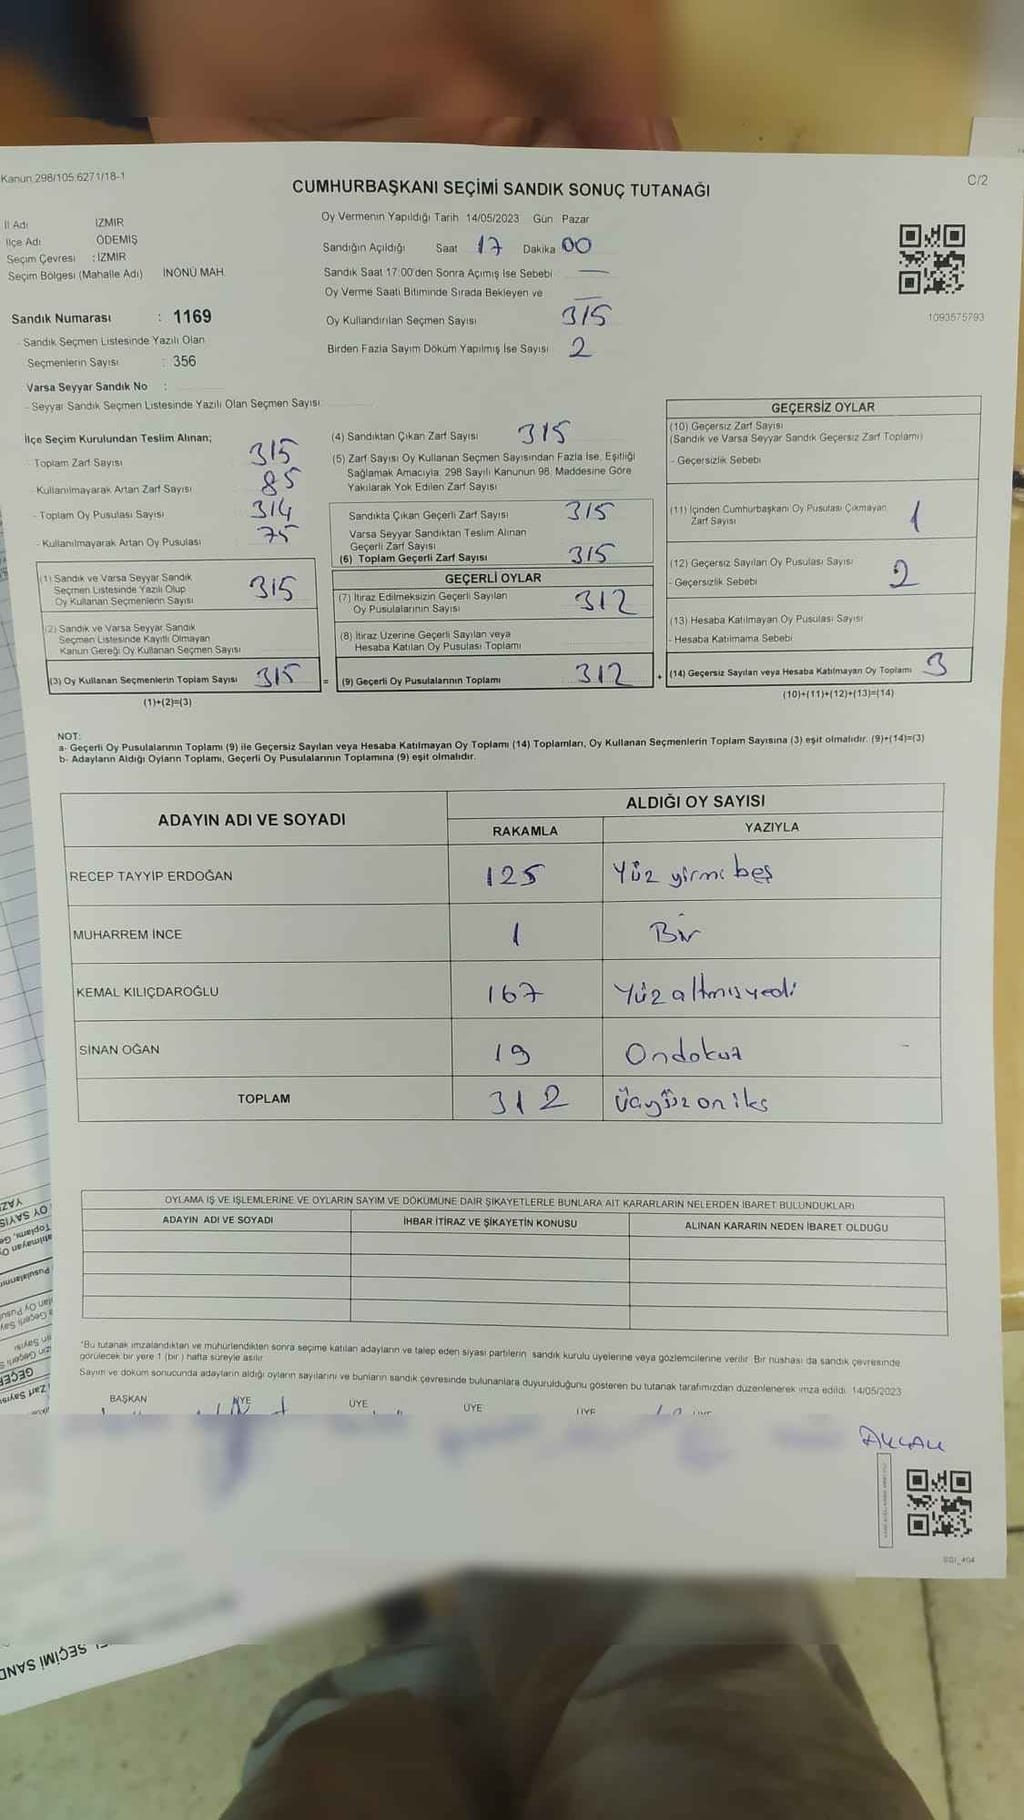 Kanun 298/105 6271/18-1
C/2
CUMHURBAŞKANI SEÇİMİ SANDIK SONUÇ TUTANAĞI
İl Adı İZMİR
İlçe Adı ÖDEMİŞ
Seçim Çevresi : İZMİR
Seçim Bölgesi (Mahalle Adı) İNÖNÜ MAH.
Sandık Numarası : 1169
- Sandık Seçmen Listesinde Yazılı Olan
Seçmenlerin Sayısı : 356
Varsa Seyyar Sandık No :
- Seyyar Sandık Seçmen Listesinde Yazılı Olan Seçmen Sayısı
Oy Vermenin Yapıldığı Tarih 14/05/2023 Gün Pazar
Sandığın Açıldığı Saat 17 Dakika 00
Sandık Saat 17:00'den Sonra Açılmış İse Sebebi —
Oy Verme Saati Bitiminde Sırada Bekleyen ve —
Oy Kullandırılan Seçmen Sayısı 315
Birden Fazla Sayım Döküm Yapılmış İse Sayısı 2
1093575793
İlçe Seçim Kurulundan Teslim Alınan;
- Toplam Zarf Sayısı 315
- Kullanılmayarak Artan Zarf Sayısı 85
- Toplam Oy Pusulası Sayısı 314
- Kullanılmayarak Artan Oy Pusulası 75
(1) Sandık ve Varsa Seyyar Sandık
Seçmen Listesinde Yazılı Olup
Oy Kullanan Seçmenlerin Sayısı 315
(2) Sandık ve Varsa Seyyar Sandık
Seçmen Listesinde Kayıtlı Olmayan
Kanun Gereği Oy Kullanan Seçmen Sayısı
(3) Oy Kullanan Seçmenlerin Toplam Sayısı 315 =
(1)+(2)=(3)
(4) Sandıktan Çıkan Zarf Sayısı 315
(5) Zarf Sayısı Oy Kullanan Seçmen Sayısından Fazla İse, Eşitliği
Sağlamak Amacıyla, 298 Sayılı Kanunun 98. Maddesine Göre
Yakılarak Yok Edilen Zarf Sayısı
Sandıkta Çıkan Geçerli Zarf Sayısı 315
Varsa Seyyar Sandıktan Teslim Alınan
Geçerli Zarf Sayısı
(6) Toplam Geçerli Zarf Sayısı 315
GEÇERLİ OYLAR
(7) İtiraz Edilmeksizin Geçerli Sayılan
Oy Pusulalarının Sayısı 312
(8) İtiraz Üzerine Geçerli Sayılan veya
Hesaba Katılan Oy Pusulası Toplamı
(9) Geçerli Oy Pusulalarının Toplamı 312 +
GEÇERSİZ OYLAR
(10) Geçersiz Zarf Sayısı
(Sandık ve Varsa Seyyar Sandık Geçersiz Zarf Toplamı)
- Geçersizlik Sebebi
(11) İçinden Cumhurbaşkanı Oy Pusulası Çıkmayan
Zarf Sayısı 1
(12) Geçersiz Sayılan Oy Pusulası Sayısı
- Geçersizlik Sebebi 2
(13) Hesaba Katılmayan Oy Pusulası Sayısı
- Hesaba Katılmama Sebebi
(14) Geçersiz Sayılan veya Hesaba Katılmayan Oy Toplamı 3
(10)+(11)+(12)+(13)=(14)
NOT:
a- Geçerli Oy Pusulalarının Toplamı (9) ile Geçersiz Sayılan veya Hesaba Katılmayan Oy Toplamı (14) Toplamları, Oy Kullanan Seçmenlerin Toplam Sayısına (3) eşit olmalıdır. (9)+(14)=(3)
b- Adayların Aldığı Oyların Toplamı, Geçerli Oy Pusulalarının Toplamına (9) eşit olmalıdır.
ADAYIN ADI VE SOYADI
ALDIĞI OY SAYISI
RAKAMLA YAZIYLA
RECEP TAYYİP ERDOĞAN 125 Yüz yirmi beş
MUHARREM İNCE 1 Bir
KEMAL KILIÇDAROĞLU 167 Yüz altmışyedi
SİNAN OĞAN 19 Ondokuz
TOPLAM 312 Üçyüz on iki
OYLAMA İŞ VE İŞLEMLERİNE VE OYLARIN SAYIM VE DÖKÜMÜNE DAİR ŞİKAYETLERLE BUNLARA AİT KARARLARIN NELERDEN İBARET BULUNDUKLARI
ADAYIN ADI VE SOYADI İHBAR İTİRAZ VE ŞİKAYETİN KONUSU ALINAN KARARIN NEDEN İBARET OLDUĞU
*Bu tutanak imzalandıktan ve mühürlendikten sonra seçime katılan adayların ve talep eden siyasi partilerin sandık kurulu üyelerine veya gözlemcilerine verilir. Bir nüshası da sandık çevresinde
görülecek bir yere 1 (bir) hafta süreyle asılır.
Sayım ve döküm sonucunda adayların aldığı oyların sayılarını ve bunların sandık çevresinde bulunanlara duyurulduğunu gösteren bu tutanak tarafımızdan düzenlenerek imza edildi. 14/05/2023
BAŞKAN ÜYE ÜYE ÜYE ÜYE ÜYE